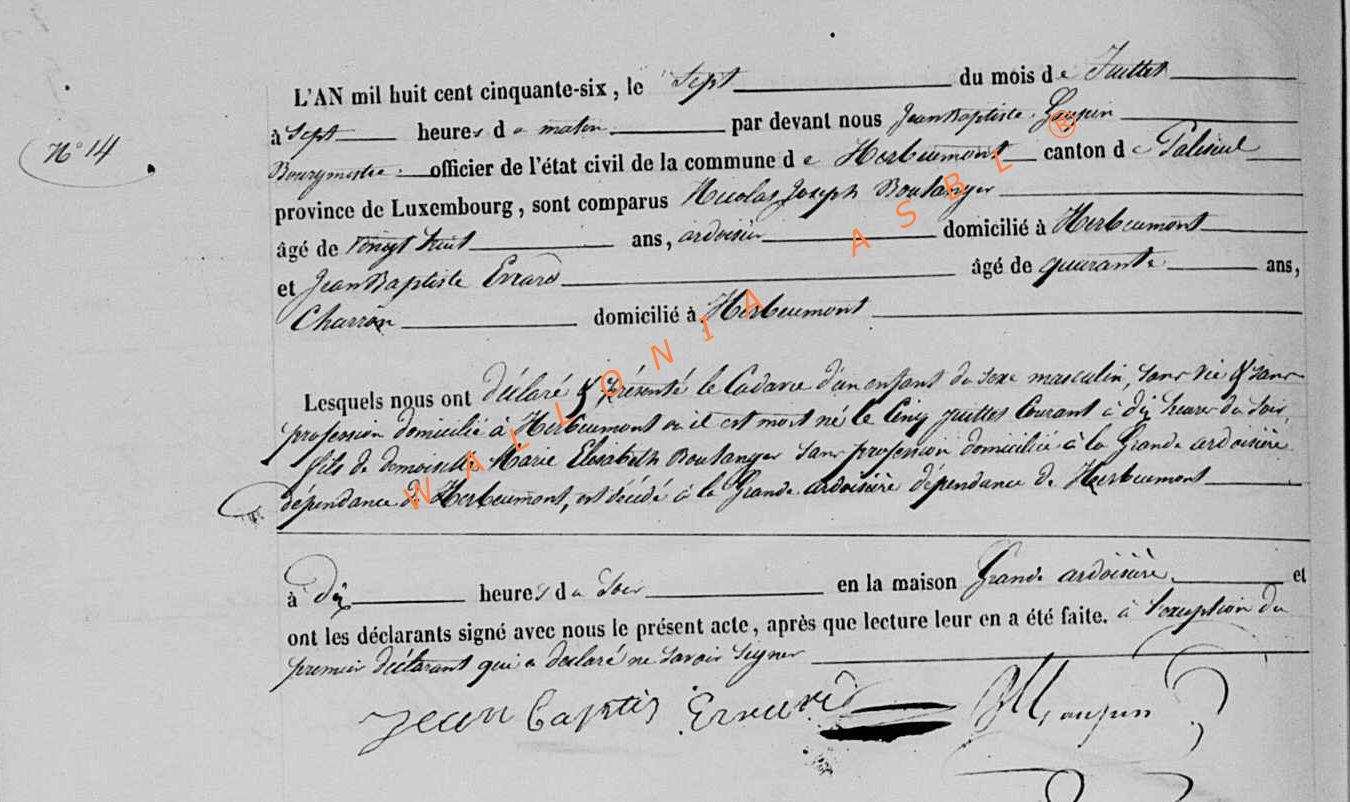 L'AN mil huit cent cinquante-six, le Sept du mois de Juillet
N° 14
à Sept heures du matin par devant nous Jean Baptiste Goupin
Bourgmestre officier de l'état civil de la commune de Herbeumont canton de Paliseul
province de Luxembourg, sont comparus Nicolas Joseph Boulanger
âgé de vingt huit ans, ardoisier domicilié à Herbeumont
et Jean Baptiste Errard âgé de quarante ans,
Charron domicilié à Herbeumont
Lesquels nous ont déclaré & présenté le Cadavre d'un enfant du Sexe masculin, sans vie & sans
profession domicilié à Herbeumont où il est mort né le Cinq Juillet Courant à dix heures du Soir
fils de demoiselle Marie Elisabeth Boulanger sans profession domiciliée à la Grande ardoisière
dépendance de Herbeumont, est décédé à la Grande ardoisière dépendance de Herbeumont
à dix heures du Soir en la maison Grande ardoisière et
ont les déclarants signé avec nous le présent acte, après que lecture leur en a été faite. à l'exception du
premier déclarant qui a déclaré ne savoir signer
Jean Baptis Errard
WALLONIA ASBL ®